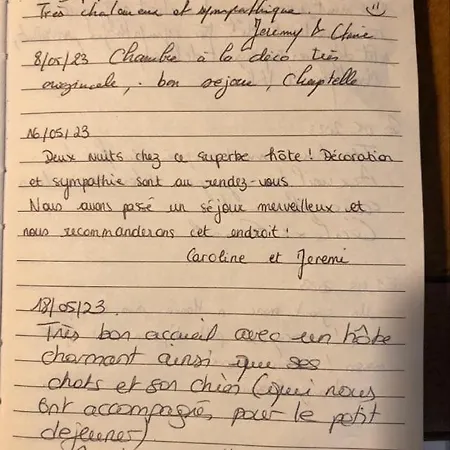 Très chaleureux et sympathique.
Jeremy & Claire
8/05/23 Chambre à la déco très
originale, bon séjour, Chaptelle
16/05/23
Deux nuits chez ce superbe hôte ! Décoration
et sympathie sont au rendez-vous
Nous avons passé un séjour merveilleux et
nous recommanderons cet endroit !
Caroline et Jeremi
18/05/23.
Très bon accueil avec un hôte
charmant ainsi que ses
chats et son chien (qui nous
ont accompagnés pour le petit
dejeuner)